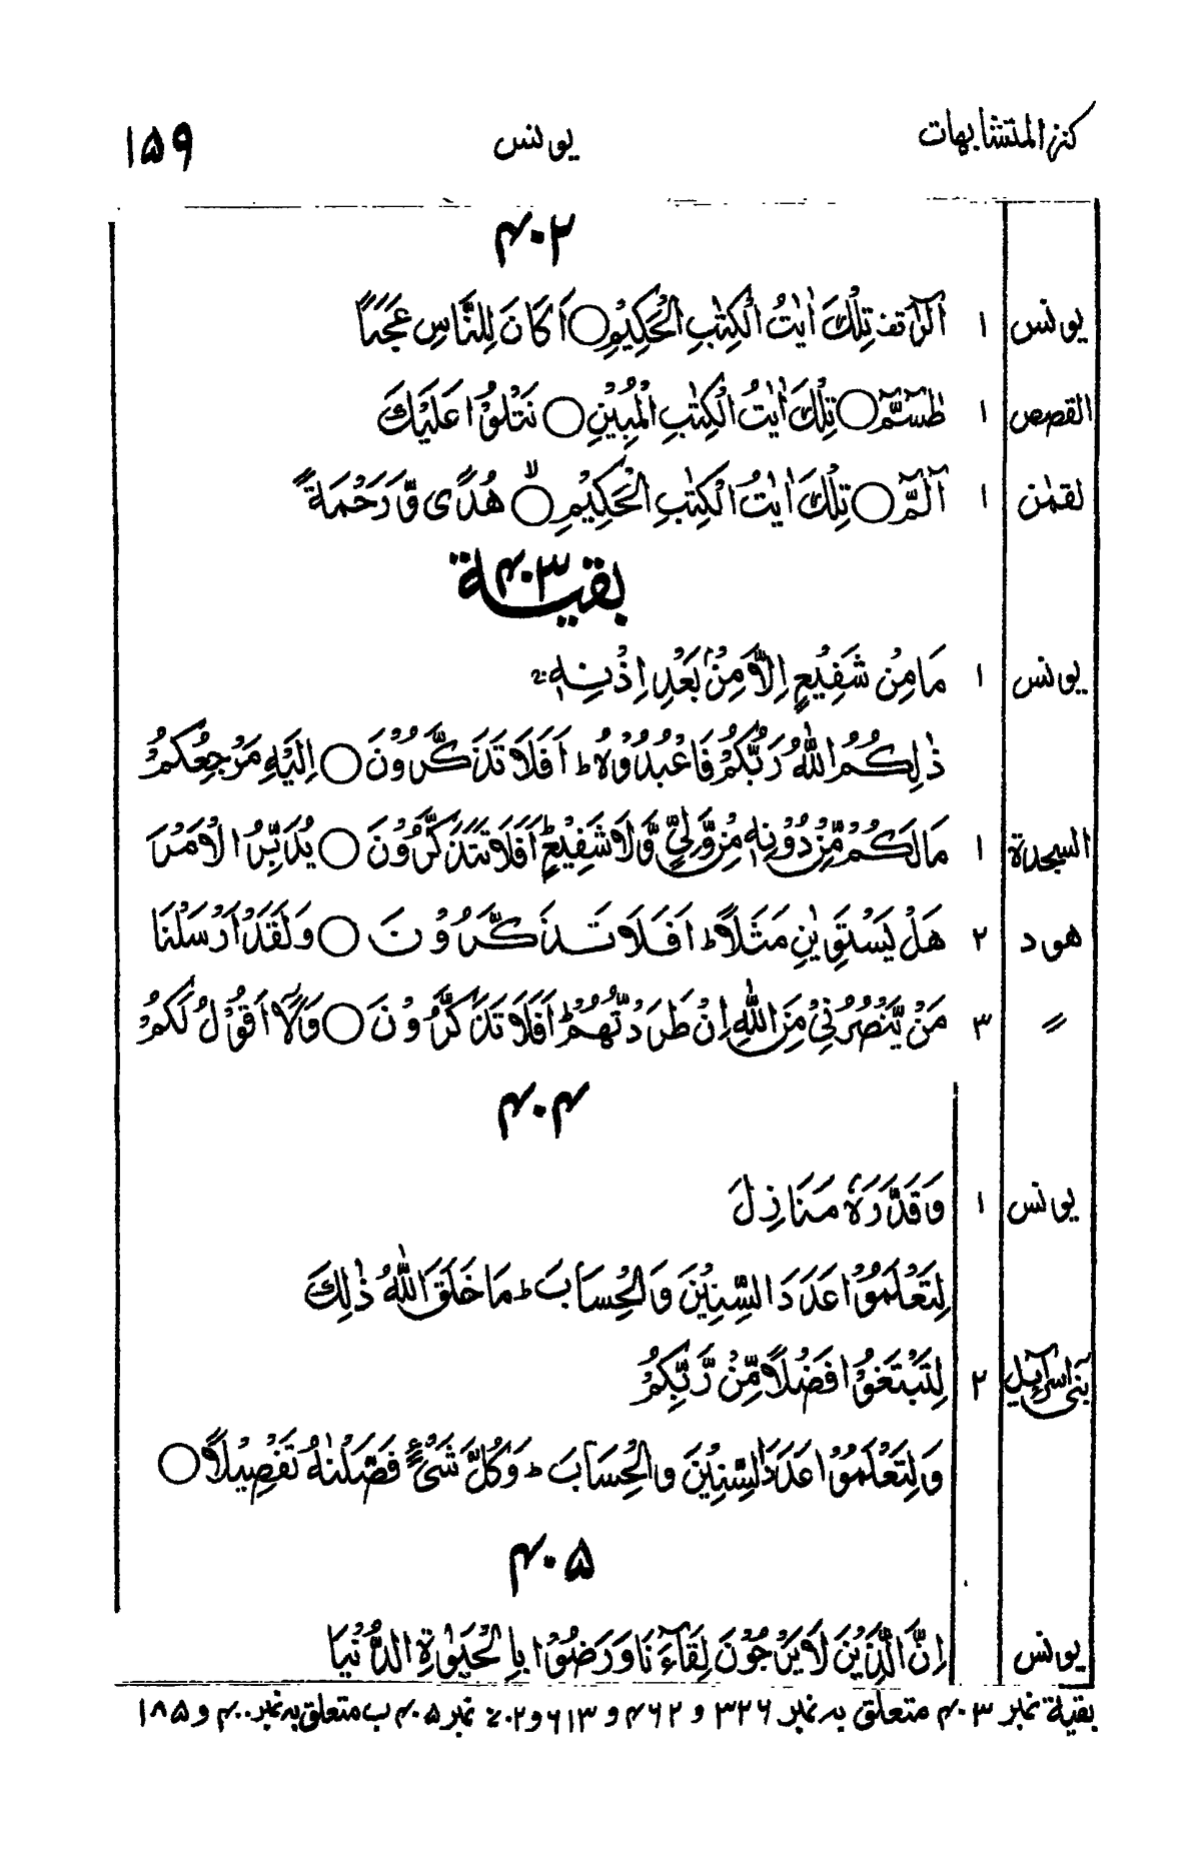 كنز المتشابهات یونس ۱۵۹
۴۰۲
یونس ۱ الٓرٰ قف تِلْكَ اٰيٰتُ الْكِتٰبِ الْحَكِيْمِ ○ اَ كَانَ لِلنَّاسِ عَجَبًا
القصص ۱ طٰسٓمّٓ ○ تِلْكَ اٰيٰتُ الْكِتٰبِ الْمُبِيْنِ ○ نَتْلُوْا عَلَيْكَ
لقمٰن ۱ الٓمّٓ ○ تِلْكَ اٰيٰتُ الْكِتٰبِ الْحَكِيْمِ ○ۙ هُدًى وَّ رَحْمَةً
بقية ۴۰۳
یونس ۱ مَا مِنْ شَفِيْعٍ اِلَّا مِنْۢ بَعْدِ اِذْنِهٖ
ذٰلِكُمُ اللّٰهُ رَبُّكُمْ فَاعْبُدُوْهُ ط اَفَلَا تَذَكَّرُوْنَ ○ اِلَيْهِ مَرْجِعُكُمْ
السجدة ۱ مَا لَكُمْ مِّنْ دُوْنِهٖ مِنْ وَّلِيٍّ وَّلَا شَفِيْعٍ ط اَفَلَا تَتَذَكَّرُوْنَ ○ يُدَبِّرُ الْاَمْرَ
هود ۲ هَلْ يَسْتَوِيٰنِ مَثَلًا ط اَفَلَا تَذَكَّرُوْنَ ○ وَلَقَدْ اَرْسَلْنَا
〃 ۳ مَنْ يَّنْصُرُنِيْ مِنَ اللّٰهِ اِنْ طَرَدْتُّهُمْ ط اَفَلَا تَذَكَّرُوْنَ ○ وَلَاۤ اَقُوْلُ لَكُمْ
۴۰۴
یونس ۱ وَقَدَّرَهٗ مَنَازِلَ
لِتَعْلَمُوْا عَدَدَ السِّنِيْنَ وَالْحِسَابَ ط مَا خَلَقَ اللّٰهُ ذٰلِكَ
بنی اسرآءیل ۲ لِتَبْتَغُوْا فَضْلًا مِّنْ رَّبِّكُمْ
وَلِتَعْلَمُوْا عَدَدَ السِّنِيْنَ وَالْحِسَابَ ط وَكُلَّ شَيْءٍ فَصَّلْنٰهُ تَفْصِيْلًا ○
۴۰۵
یونس اِنَّ الَّذِيْنَ لَا يَرْجُوْنَ لِقَآءَنَا وَرَضُوْا بِالْحَيٰوةِ الدُّنْيَا
بقیة نمبر ۴۰۳ متعلق بہ نمبر ۳۲۶ و ۴۶۲ و ۶۱۳ و ۷۰۲ نمبر ۴۰۵ ب متعلق بہ نمبر ۴۰۰ و ۱۸۵